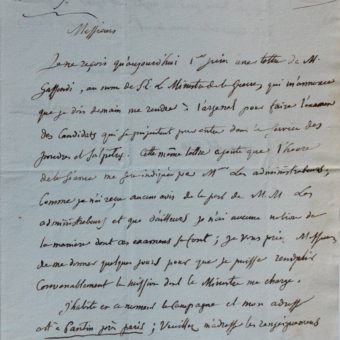 Messieurs
Je ne reçois qu'aujourd'hui 1er juin une lettre de M.
Gassendi, au nom de S.E. Le Ministre de la Guerre, qui m'annonce
que je dois demain me rendre à l'arsenal pour faire l'examen
des Candidats qui se présentent pour entrer dans le service des
poudres et salpêtres. Cette même lettre ajoute que l'heure
de la séance me sera indiquée par Mrs Les administrateurs,
Comme je n'ai reçu aucun avis de la part de M.M. Les
administrateurs et que d'ailleurs je n'ai aucune notion de
la manière dont ces examens se font ; je vous prie, Messieurs
de me donner quelques jours pour que je puisse remplir
Convenablement la mission dont le Ministre me charge.
J'habite en ce moment la Campagne et mon adresse
est à Pantin près paris ; Veuillez m'adresser les renseignemens